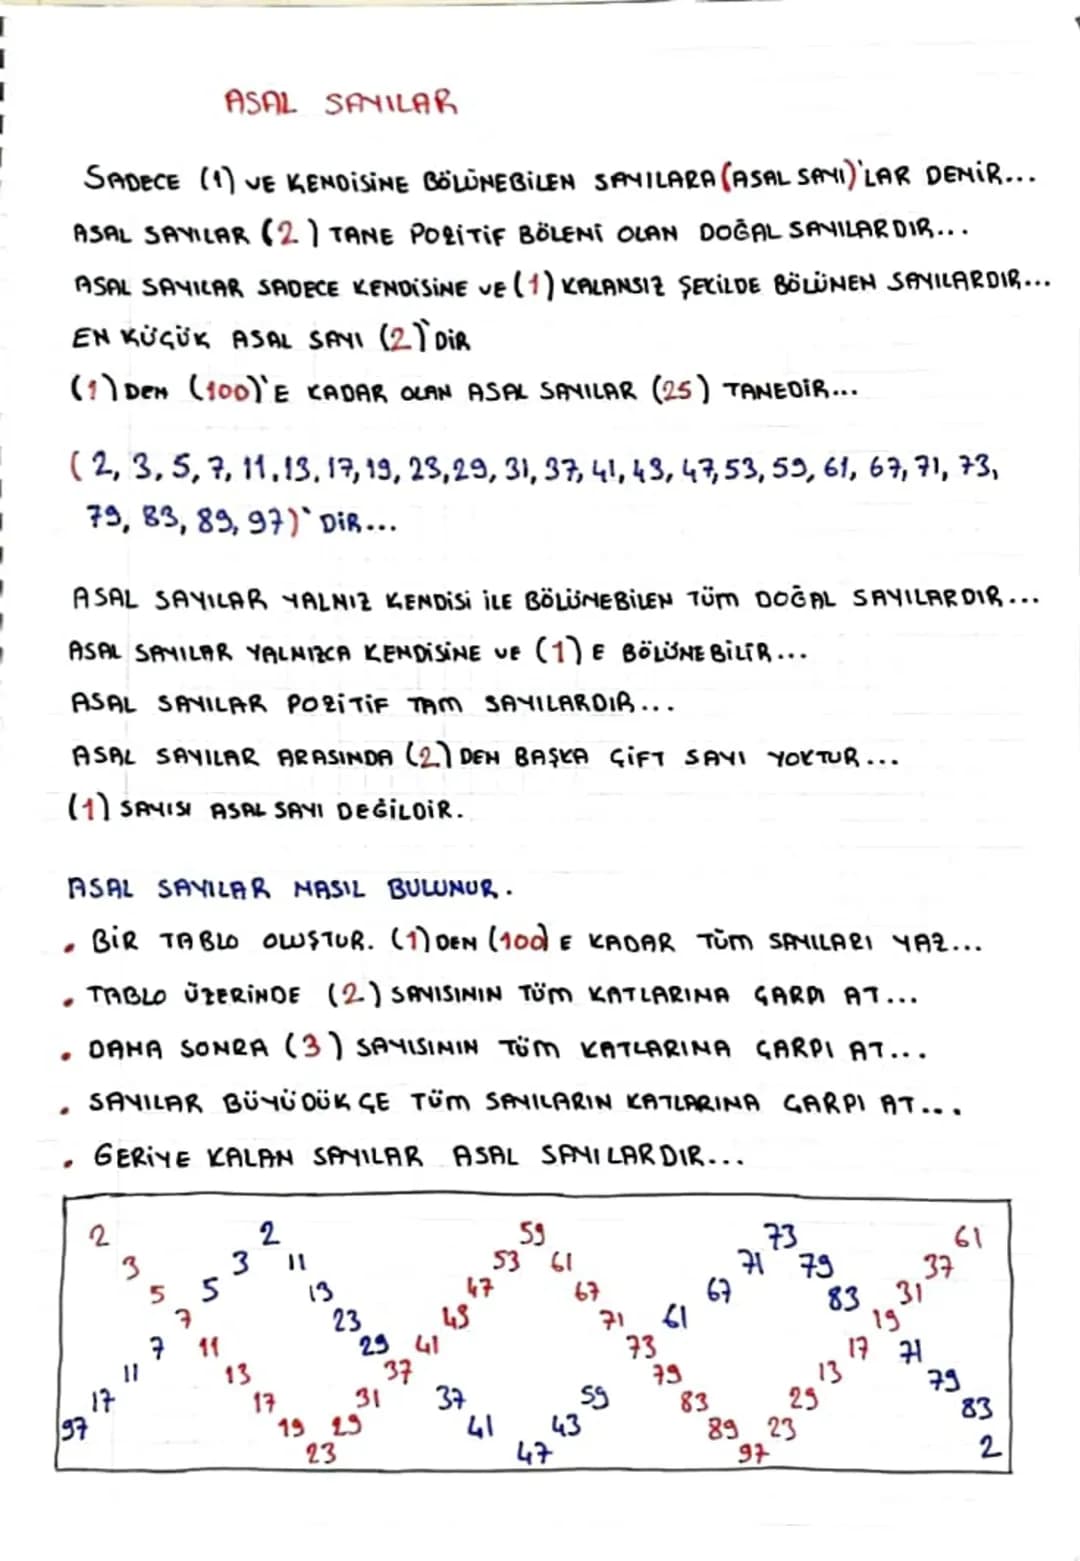 ASAL SAYILAR
SADECE (1) VE KENDİSİNE BÖLÜNEBİLEN SAYILARA (ASAL SAYI)'LAR DENİR...
ASAL SAYILAR (2) TANE POZİTİF BÖLENİ OLAN DOĞAL SAYILARDIR...
ASAL SAYILAR SADECE KENDİSİNE VE (1) KALANSIZ ŞEKİLDE BÖLÜNEN SAYILARDIR...
EN KÜÇÜK ASAL SAYI (2)'DİR
(1) DEN (100)'E KADAR OLAN ASAL SAYILAR (25) TANEDİR...
(2, 3, 5, 7, 11, 13, 17, 19, 23, 29, 31, 37, 41, 43, 47, 53, 59, 61, 67, 71, 73,
79, 83, 89, 97)'DİR...
ASAL SAYILAR YALNIZ KENDİSİ İLE BÖLÜNEBİLEN TÜM DOĞAL SAYILARDIR...
ASAL SAYILAR YALNIZCA KENDİSİNE VE (1) E BÖLÜNEBİLİR...
ASAL SAYILAR POZİTİF TAM SAYILARDIR...
ASAL SAYILAR ARASINDA (2) DEN BAŞKA ÇİFT SAYI YOKTUR...
(1) SAYISI ASAL SAYI DEĞİLDİR.
ASAL SAYILAR NASIL BULUNUR.
• BİR TABLO OLUŞTUR. (1) DEN (100) E KADAR TÜM SAYILARI YAZ...
• TABLO ÜZERİNDE (2) SAYISININ TÜM KATLARINA ÇARPI AT...
• DAHA SONRA (3) SAYISININ TÜM KATLARINA ÇARPI AT...
• SAYILAR BÜYÜDÜKÇE TÜM SAYILARIN KATLARINA ÇARPI AT...
• GERİYE KALAN SAYILAR ASAL SAYILARDIR...
2 2 59 73 61
3 3 11 53 61 71 79 37
5 5 13 47 67 67 83 31
7 23 43 71 61 19
7 11 29 41 73 17 71
11 13 37 79 13 79
17 17 31 37 59 83 29 83
97 19 29 41 43 89 23
23 47 97 2